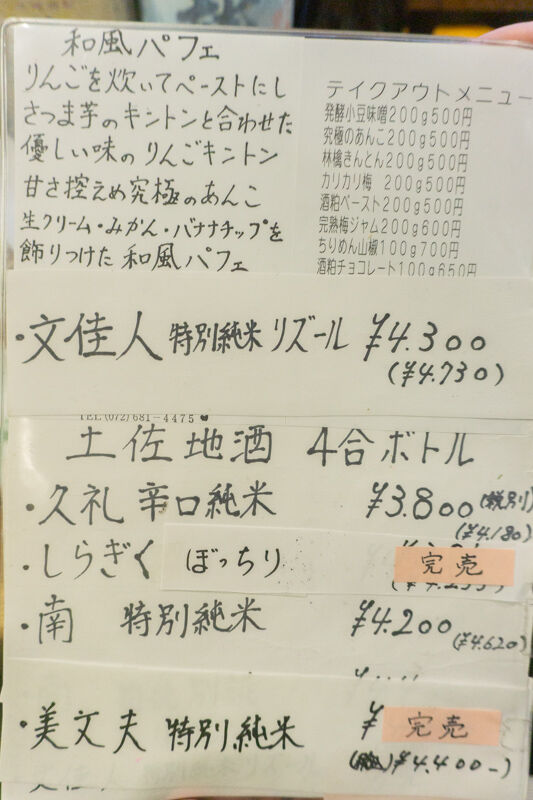 和風パフェ
りんごを炊いてペーストにし
さつま芋のキントンと合わせた
優しい味のりんごキントン
甘さ控えめ究極のあんこ
生クリーム・みかん・バナナチップを
飾りつけた 和風パフェ
テイクアウトメニュー
発酵小豆味噌200g500円
究極のあんこ200g500円
林檎きんとん200g500円
カリカリ梅 200g500円
酒粕ペースト200g500円
完熟梅ジャム200g600円
ちりめん山椒100g700円
酒粕チョコレート100g650円
・文佳人 特別純米 リズール ¥4.300
(¥4.730)
TEL(072)681-4475
土佐地酒 4合ボトル
・久礼 辛口純米 ¥3.800(税別)
(¥4.180)
・しらぎく ぼっちり 完売
・南 特別純米 ¥4.200
(¥4.620)
・美丈夫 特別純米 ¥ 完売
(税込¥4.400-)